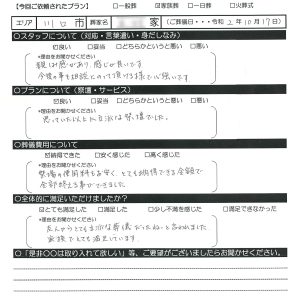 【今回ご依頼されたプラン】 □一般葬 ☑家族葬 □一日葬 □火葬式
エリア 川口市 葬家名 家 (ご葬儀日・・・令和2年10月17日)
○スタッフについて（対応・言葉遣い・身だしなみ）
☑良い □妥当 □どちらかというと悪い □悪い
*理由をお聞かせください
親しみ感があり、感じが良いです
今後の事も相談にのって頂ける様で心強いです
○プランについて（祭壇・サービス）
☑良い □妥当 □どちらかというと悪い □悪い
*理由をお聞かせください
思っていた以上に立派な祭壇でした。
○葬儀費用について
☑納得できた □安く感じた □高く感じた
*理由をお聞かせください
祭場の使用料も安く、とても納得できる金額で
全部終える事ができました。
○全体的に満足いただけましたか？
☑とても満足した □満足した □少し不満を感じた □満足できなかった
*理由をお聞かせください
友人からとても立派な葬儀だったねと言われました
家族でとても満足しています
○「是非○○は取り入れて欲しい」等、ご要望がございましたらお聞かせください。